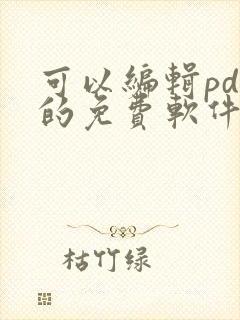 可以編輯pd
的免費軟件
枯竹绿